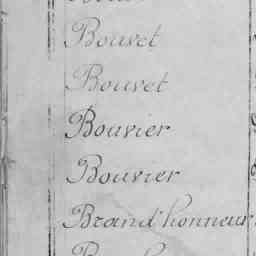 Bouvet
Bouvet
Bouvier
Bouvier
Brand'honneur